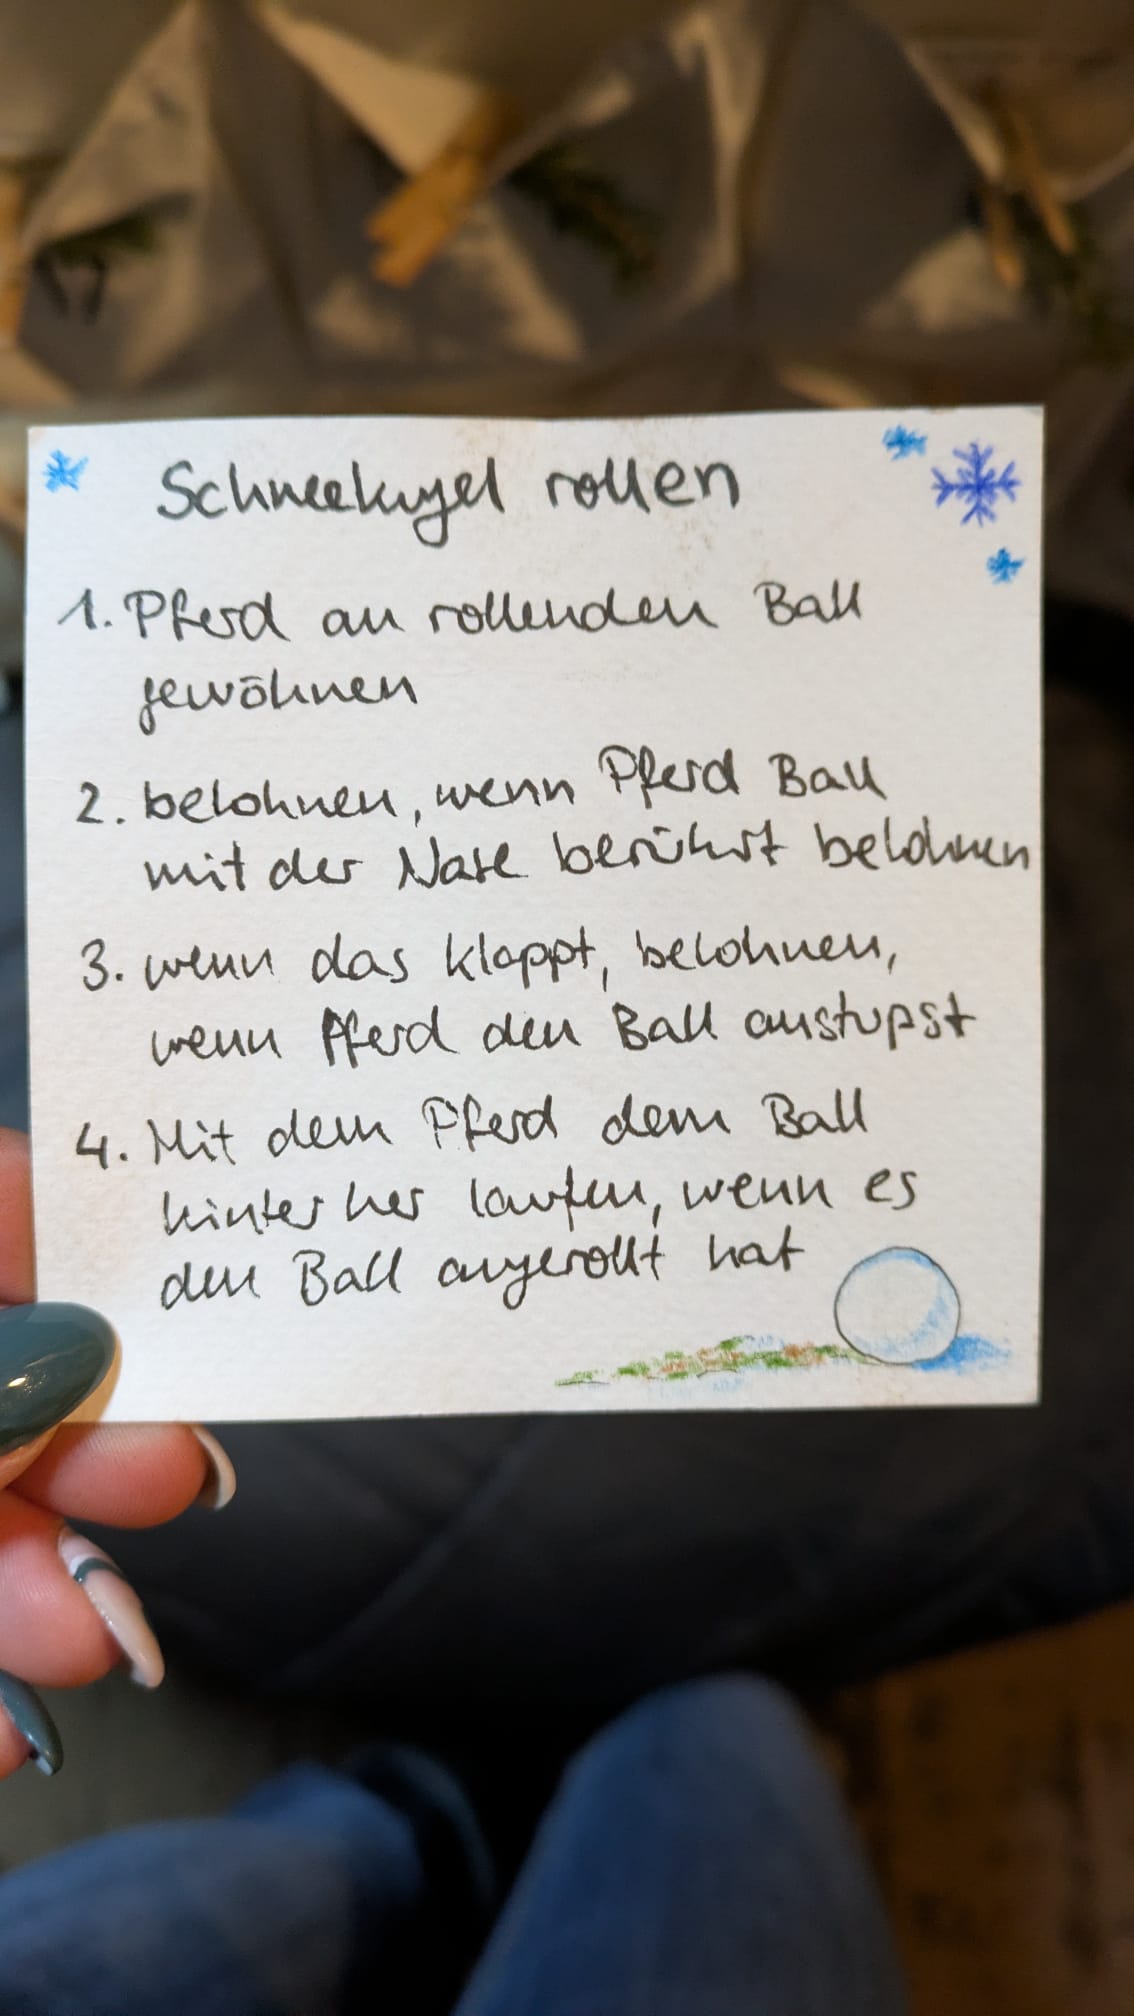 Schneekugel rollen
1. Pferd an rollenden Ball
gewöhnen
2. belohnen, wenn Pferd Ball
mit der Nase berührt belohnen
3. wenn das klappt, belohnen,
wenn Pferd den Ball anstupst
4. Mit dem Pferd dem Ball
hinterher laufen, wenn es
den Ball angerollt hat